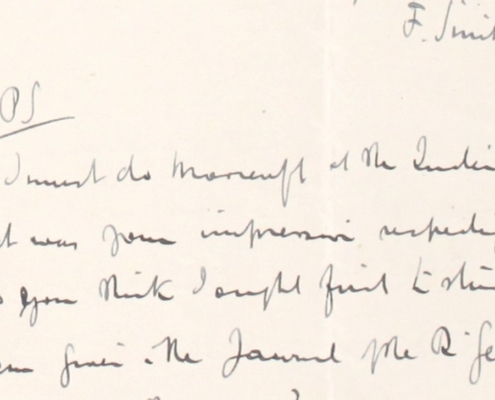 F. Smit
PS
I must do Moorcroft at the India
t was your impression respecting
you think I ought first to
given in the Journal of the R. Ge